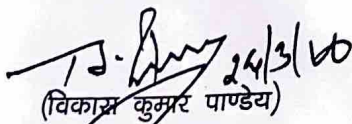 24/3/00
(विकास कुमार पाण्डेय)